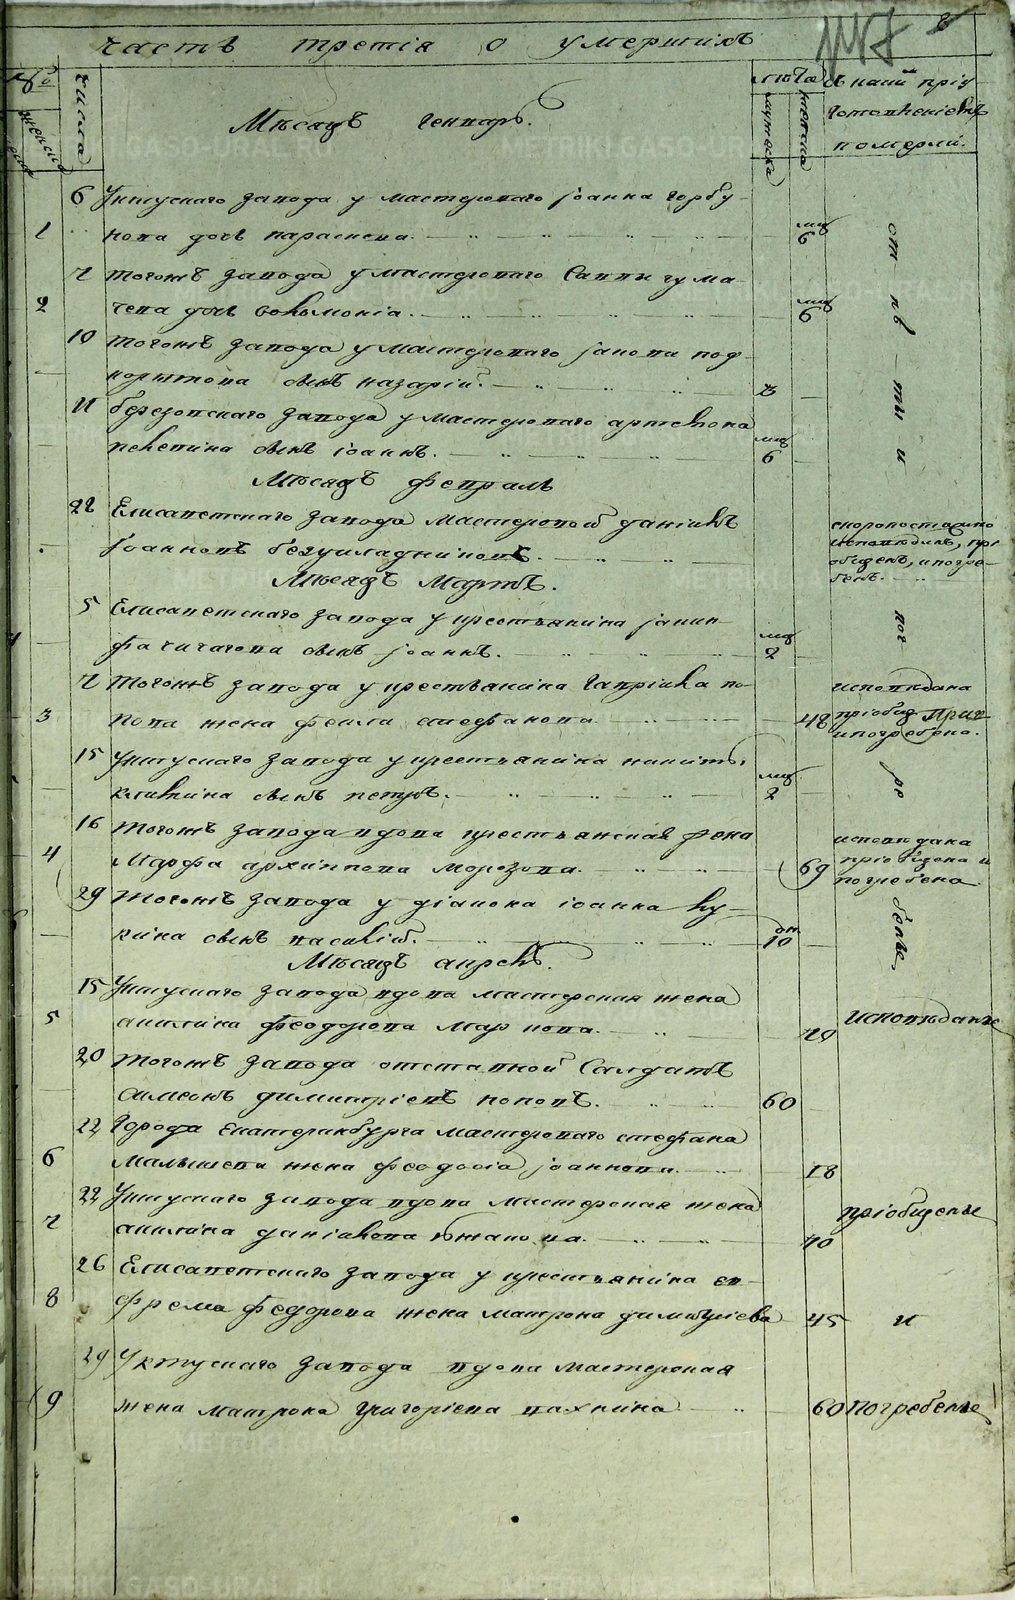 часть третія о умершихъ
числа
лѣта
мужеска
женска
съ каким пріу
готовленіемъ
померли.
Мѣсяцъ Генварь.
6 Уктускаго завода у мастероваго Іоанна горбу-
1 нова дочь параскева. мц 6
7 тогожъ завода у мастероваго Саввы
2 чева дочь Соломоніа. мц 6
10 тогожъ завода у мастероваго Іакова под-
корытова сынъ назарій. 3
11 березовскаго завода у мастероваго артемона
сынъ іоаннъ. мц 6
отпѣты и
Мѣсяцъ февраль
22 Елисаветскаго завода мастеровой даніилъ
Іоанновъ безукладниковъ.
скоропостижно
исповѣданъ, прі
общенъ, и погре-
бенъ.
Мѣсяцъ Мартъ.
5 Елисаветскаго завода у крестьянина
сынъ Іоаннъ. мц 2
7 тогожъ завода у крестьянина Гавріила по-
3 пова жена феклa стефанова 48
исповѣдана
пріобщ
и погребена.
15 Уктускаго завода у крестьянина никиты
клюкина сынъ петръ. мц 2
16 тогожъ завода вдова крестьянская жена
4 Марфа архиппова морозова. 69
исповѣдана
пріобщена и
погребена
29 тогожъ завода у діакона іоанна
сынъ василій. дн 10
погребены
Мѣсяцъ апрель.
15 Уктускаго завода вдова мастерская жена
5 акилина феодорова маркова. 70
исповѣданы
20 тогожъ завода отставной Салдатъ
симеонъ димитріевъ поповъ. 60
22 Города Екатеринбурга мастероваго стефана
6 малышева жена феодосіа Іоаннова. 18
22 Уктускаго завода вдова мастерская жена
7 акилина даніилова южакова. 70
пріобщены
26 Елисаветскаго завода у крестьянина еф-
8 фрема феодорова жена матрона димитріева 45
и
29 Уктускаго завода вдова мастерская
9 жена матрона григоріева пахкина 60
Погребены